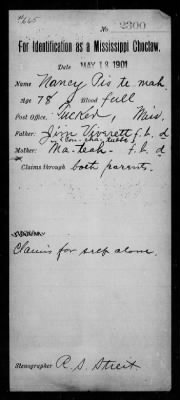 #665
No. 2300
For Identification as a Mississippi Choctaw.
Date MAY 18 1901
Name Nancy Pis te mah
Age 78 Blood full
Post Office, Tucker, Miss.
Father: Jim Viverett f.b. d
Con-cha-tubbe
Mother: Ma-teah - f.b. d
Claims through both parents.
Claims for self alone.
Stenographer R. S. Streit